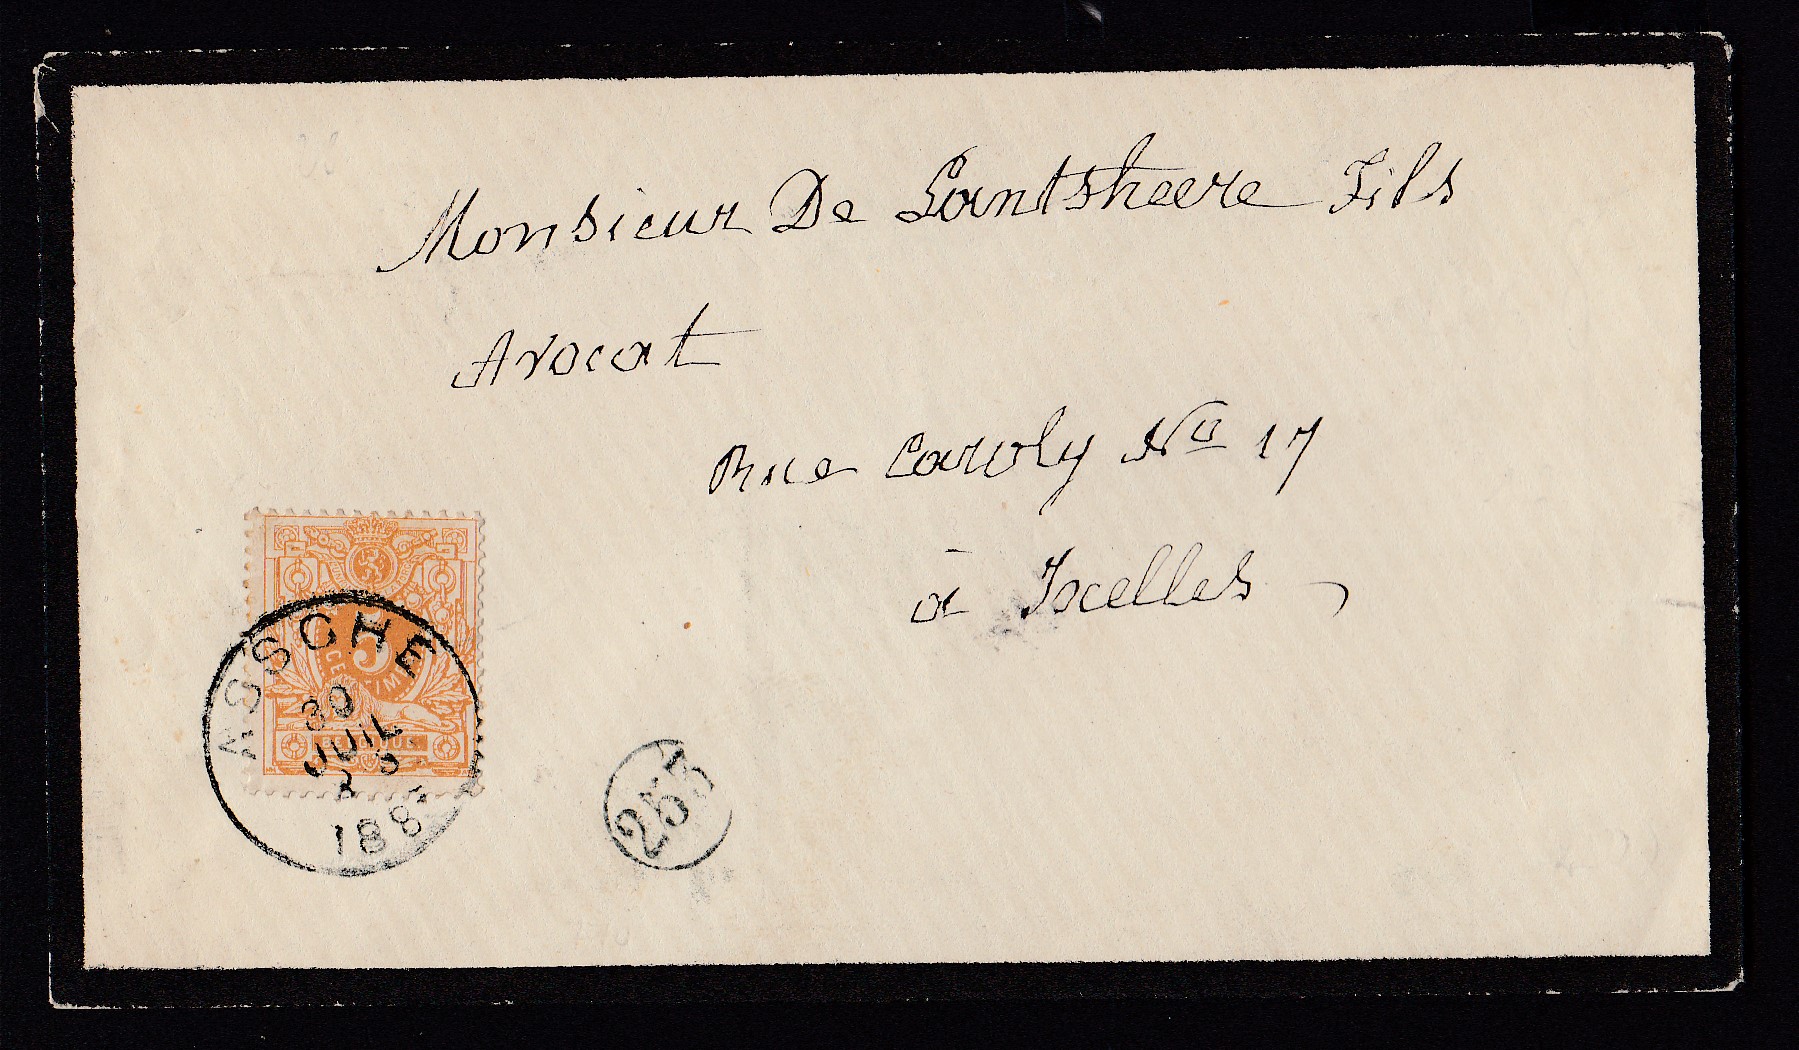 Monsieur De Lantsheere Fils
Avocat
Rue Caroly No 17
à Ixelles
5
BELGIQUE
ASSCHE
30
JUIL
188
255